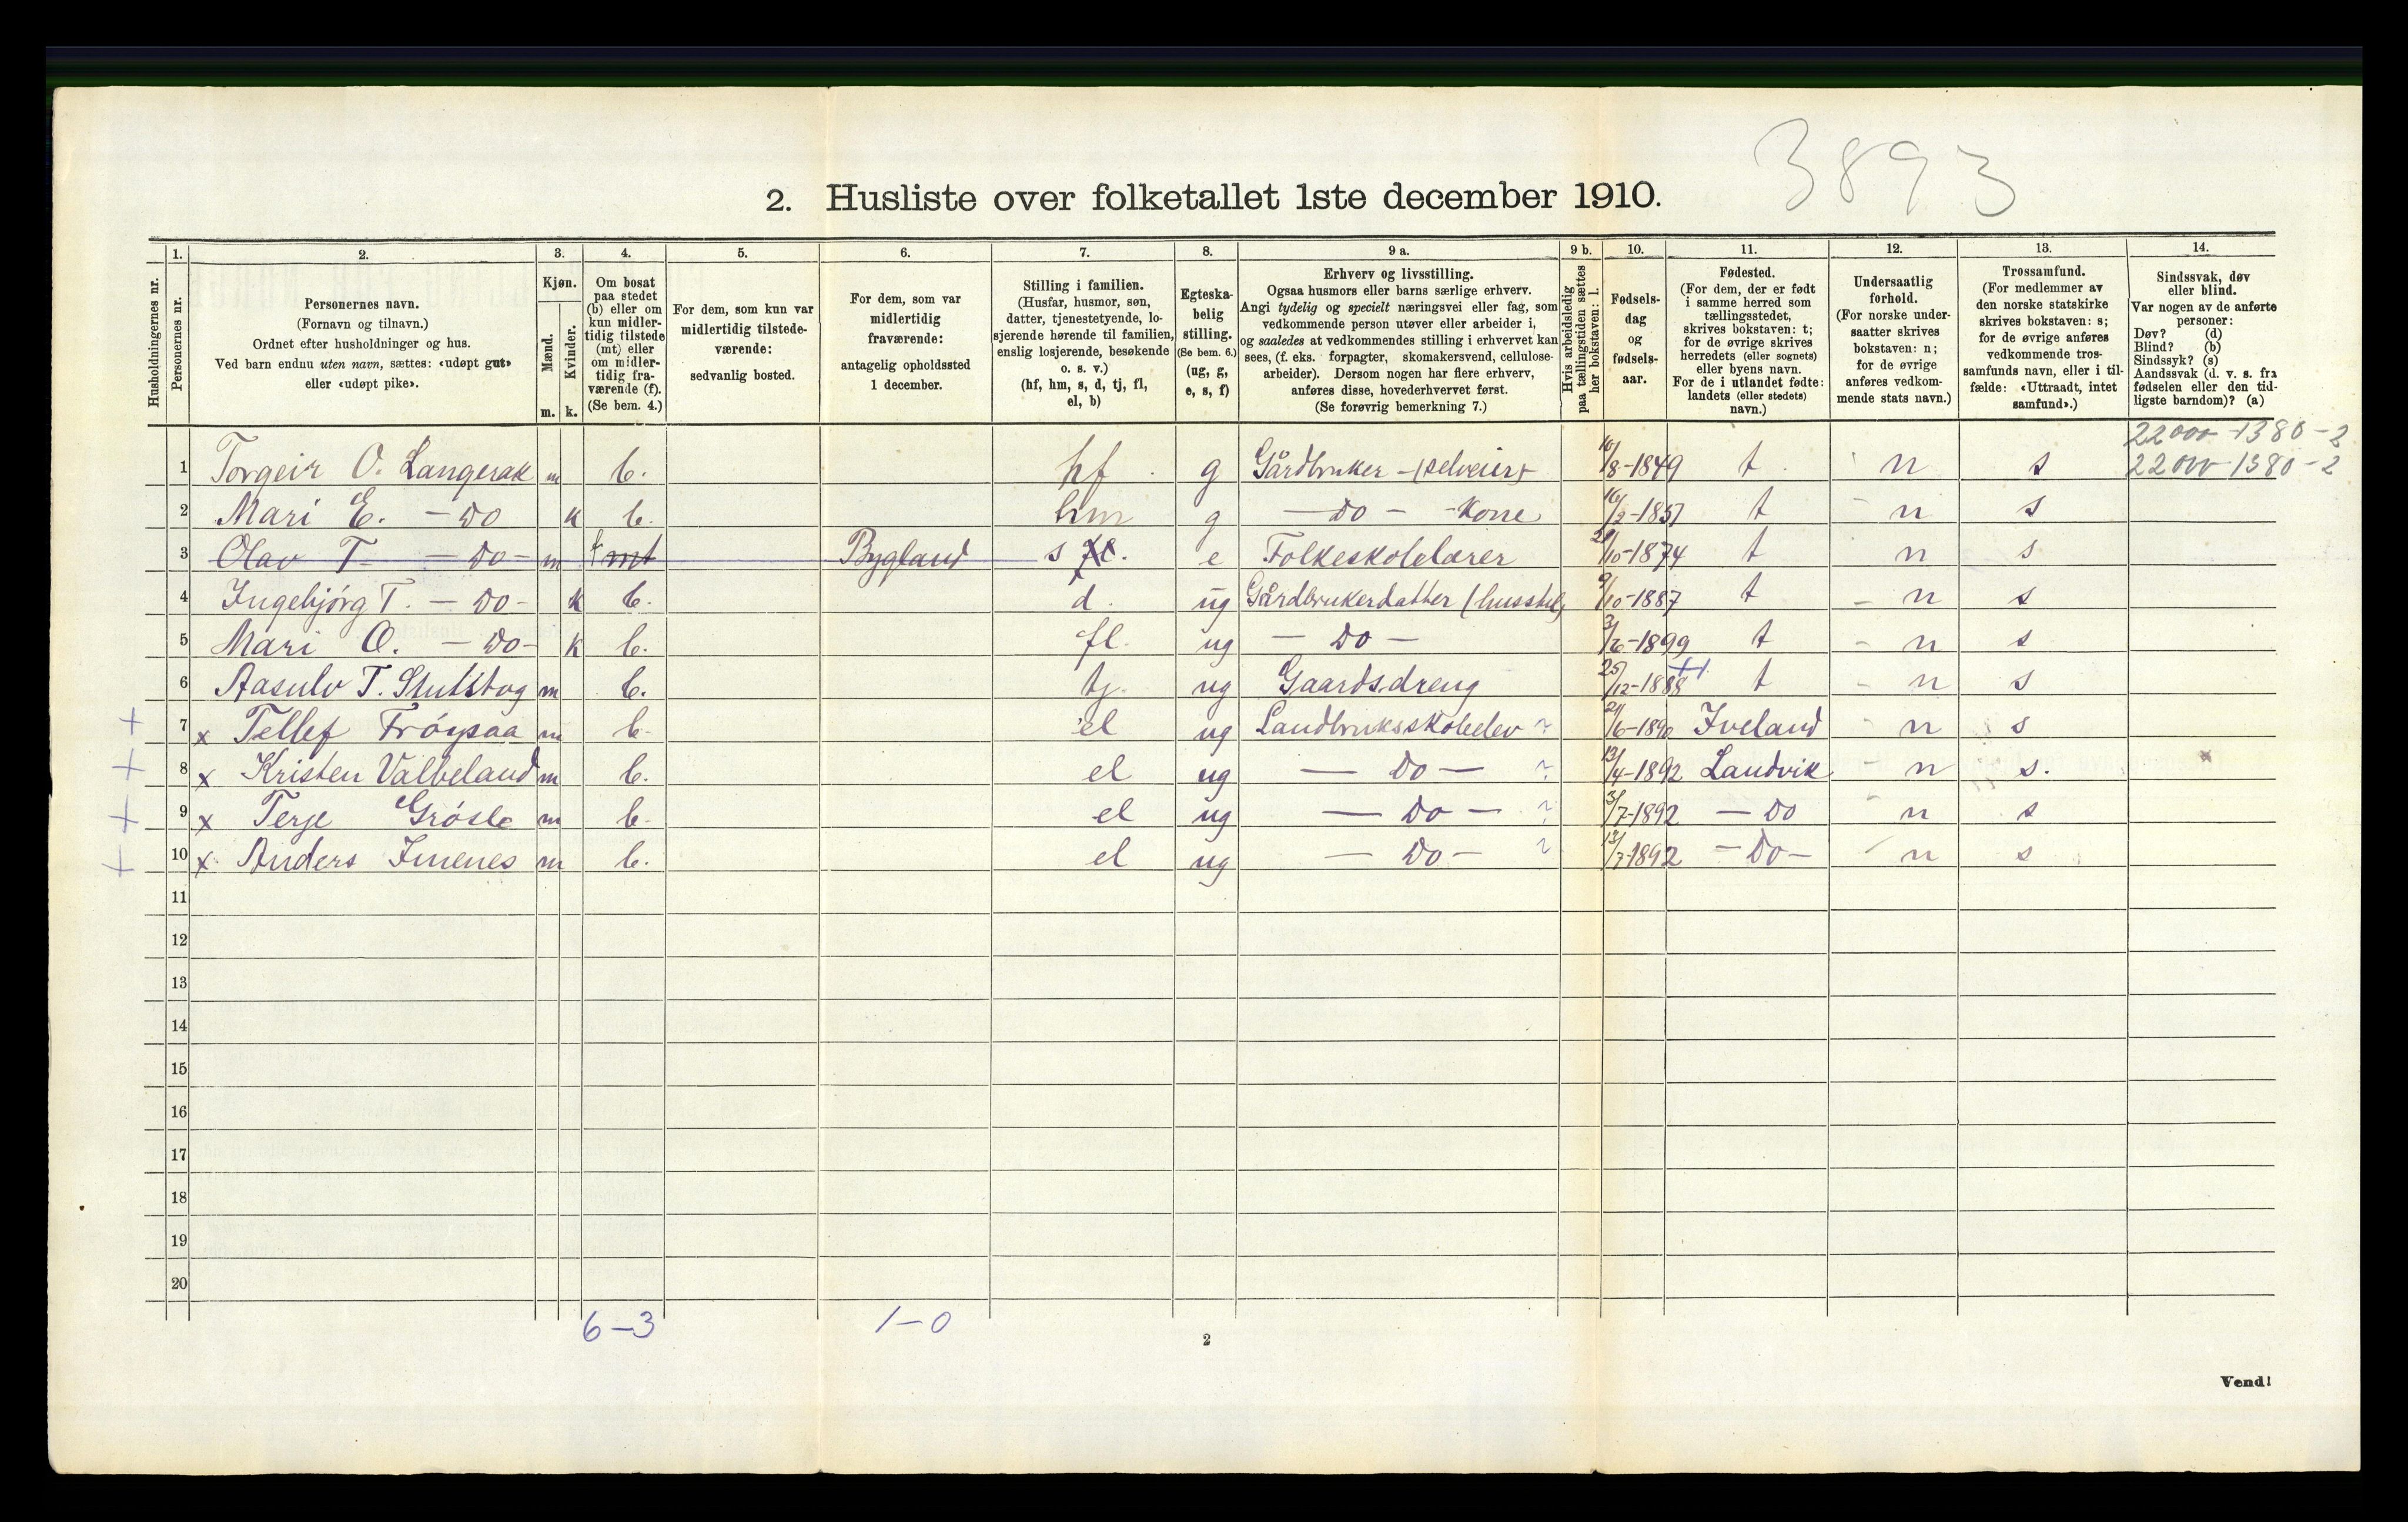 3893
2. Husliste over folketallet 1ste december 1910.
Husholdningernes nr.
1.
Personernes nr.
2.
Personernes navn.
(Fornavn og tilnavn.)
Ordnet efter husholdninger og hus.
Ved barn endnu uten navn, sættes: «udøpt gut»
eller «udøpt pike».
3.
Kjøn.
Mænd.
Kvinder.
m. k.
4.
Om bosat
paa stedet
(b) eller om
kun midler-
tidig tilstede
(mt) eller
om midler-
tidig fra-
værende (f).
(Se bem. 4.)
5.
For dem, som kun var
midlertidig tilstede-
værende:
sedvanlig bosted.
6.
For dem, som var
midlertidig
fraværende:
antagelig opholdssted
1 december.
7.
Stilling i familien.
(Husfar, husmor, søn,
datter, tjenestetyende, lo-
sjerende hørende til familien,
enslig losjerende, besøkende
o. s. v.)
(hf, hm, s, d, tj, fl,
el, b)
8.
Egteska-
belig
stilling.
(Se bem. 6.)
(ug, g,
e, s, f)
9 a.
Erhverv og livsstilling.
Ogsaa husmors eller barns særlige erhverv.
Angi tydelig og specielt næringsvei eller fag, som
vedkommende person utøver eller arbeider i,
og saaledes at vedkommendes stilling i erhvervet kan
sees, (f. eks. forpagter, skomakersvend, cellulose-
arbeider). Dersom nogen har flere erhverv,
anføres disse, hovederhvervet først.
(Se forøvrig bemerkning 7.)
9 b.
Hvis arbeidsledig
paa tællingstiden sættes
her bokstaven: l.
10.
Fødsels-
dag
og
fødsels-
aar.
11.
Fødested.
(For dem, der er født
i samme herred som
tællingsstedet,
skrives bokstaven: t;
for de øvrige skrives
herredets (eller sognets)
eller byens navn.
For de i utlandet fødte:
landets (eller stedets)
navn.)
12.
Undersaatlig
forhold.
(For norske under-
saatter skrives
bokstaven: n;
for de øvrige
anføres vedkom-
mende stats navn.)
13.
Trossamfund.
(For medlemmer av
den norske statskirke
skrives bokstaven: s;
for de øvrige anføres
vedkommende tros-
samfunds navn, eller i til-
fælde: «Uttraadt, intet
samfund».)
14.
Sindssvak, døv
eller blind.
Var nogen av de anførte
personer:
Døv? (d)
Blind? (b)
Sindssyk? (s)
Aandssvak (d. v. s. fra
fødselen eller den tid-
ligste barndom)? (a)
22000-1380-2
1 Torgeir O. Langerak m b. hf g Gårdbruker (selveier) 10/8-1849 t n s 22000-1380-2
2 Mari E. - Do k b. hm g - Do - Kone 16/2-1857 t n s
3 Olav T - Do - m f mt Bygland s fl. e Folkeskolelærer 21/10-1874 t n s
4 Ingebjørg T. - Do - k b. d. ug Gårdbrukerdatter (husstel) 9/10-1887 t n s
5 Mari O. - Do - k b. fl. ug - Do - 3/6-1899 t n s
6 Aasulv T. m b. tj. ug Gaardsdreng 25/12-1888 t n s
+ 7 x Tellef Frøysaa m b. el ug Landbruksskoleelev ? 21/6-1890 Iveland n s
+ 8 x Kristen Valbeland m b. el ug - Do - ? 13/4-1892 Landvik n s.
+ 9 x Terje Grøsle m b. el ug - Do - ? 3/7-1892 - Do n s
+ 10 x Anders Imenes m b. el ug - Do - ? 13/7-1892 - Do - n s
11
12
13
14
15
16
17
18
19
20
6-3 1-0
2
Vend!